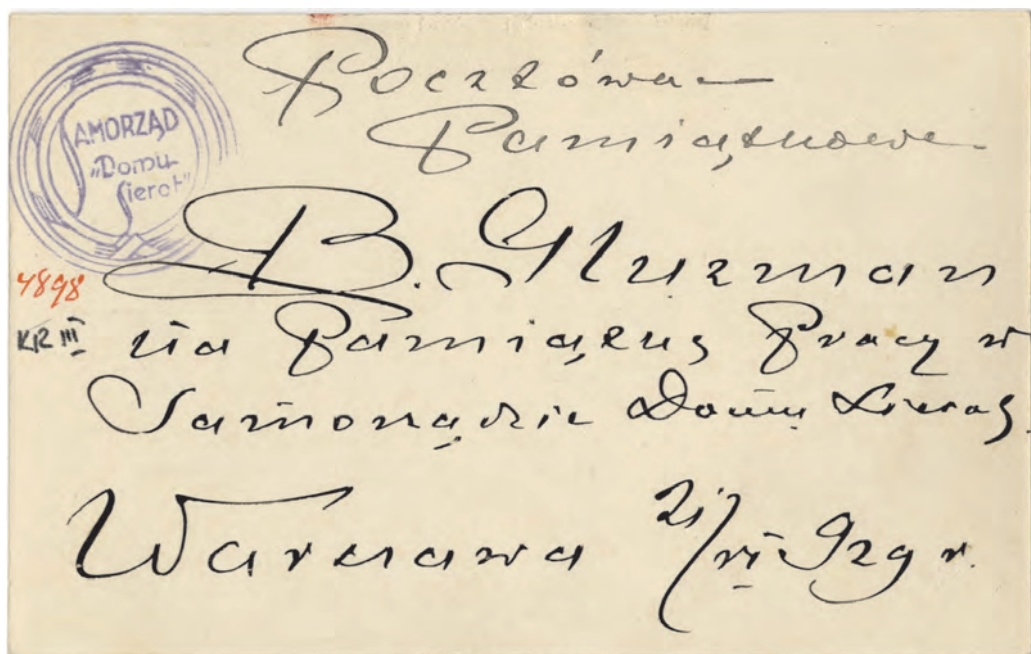 SAMORZĄD
„Domu
Sierot”
Pocztówka
Pamiątkowa
B. Gluzman
4898
KR III
na Pamiątkę Pracy w
Samorządzie Domu Sierot.
Warszawa 21/VI 929 r.